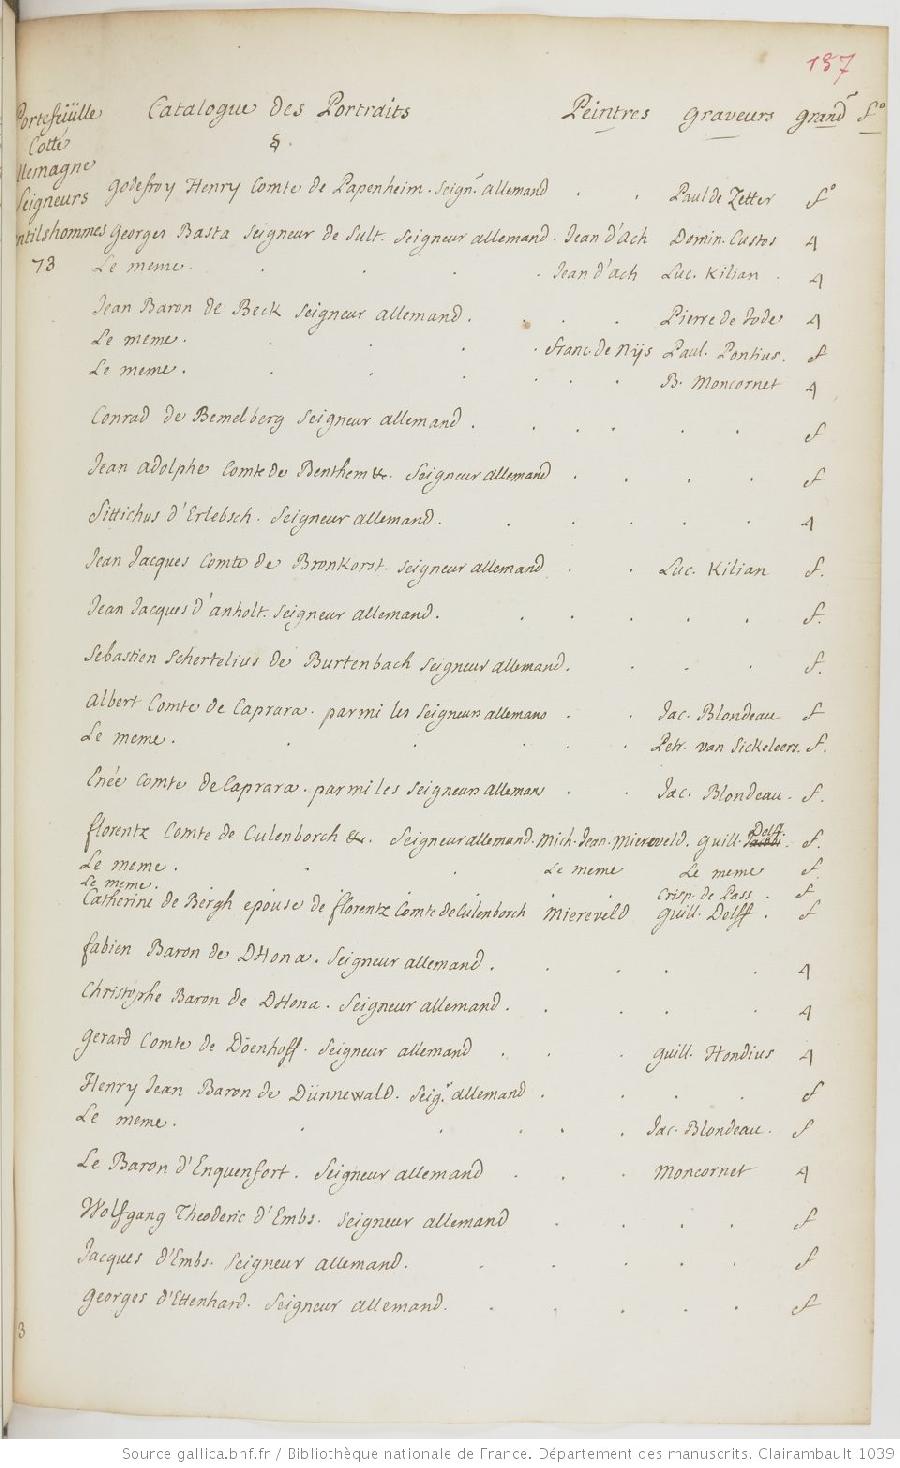 187
Portefeüille Catalogue des Portraits Peintres graveurs grandʳ fº
Cotté
§.
llemagne
Seigneurs godefroy Henry Comte de Papenheim. Seignʳ allemand . . Paul de Zetter fº
ntilshommes Georges Basta Seigneur de Sult. Seigneur allemand. Jean d'Ach Domin. Custos 4
73 Le meme. . . . . Jean d'ach Luc. Kilian . 4
Jean Baron de Beck Seigneur allemand. . . . Pierre de Jode 4
Le meme. . . . . franc. de Nijs Paul. Pontius. f
Le meme. . . . . . . B. Moncornet 4
Conrad de Bemelberg Seigneur allemand . . . . . . f
Jean adolphe Comte de Benthem &c. Seigneur allemand . . . . f
Sittichus d'Erlebsch. Seigneur allemand. . . . . . 4
Jean Jacques Comte de Bronkorst. Seigneur allemand . . Luc. Kilian f.
Jean Jacques d'anholt. Seigneur allemand. . . . . . f.
Sebastien Schertelius de Burtenbach Seigneur allemand. . . . f.
albert Comte de Caprara. parmi les Seigneurs allemans . . Jac. Blondeau f
Le meme. . . . . . Petr. van Sickeleers. f.
Enée Comte de Caprara. parmi les Seigneurs allemans . . Jac. Blondeau. f.
florentz Comte de Culenborch &c. Seigneur allemand. Mich. Jean. Miereveld. guill. Delff. f.
Le meme. . . Le meme Le meme f.
Le meme. Crisp. de Pass . f
Catherine de Bergh epouse de florentz Comte de Culenborch Miereveld guill. Delff . f
fabien Baron de DHona. Seigneur allemand. . . . . 4
Christophe Baron de DHona. Seigneur allemand. . . . . 4
gerard Comte de Döenhoff. Seigneur allemand . . . guill. Hondius 4
Henry Jean Baron de Dünnewald. Seigʳ. allemand . . . . f
Le meme. . . . . . Jac. Blondeau. f
Le Baron d'Enquenfort. Seigneur allemand . . . Moncornet 4
Wolfgang Theoderic d'Embs. Seigneur allemand . . . . f
Jacques d'Embs. Seigneur allemand. . . . . . f
georges d'Ettenhard. Seigneur allemand. . . . . f
3
Source gallica.bnf.fr / Bibliothèque nationale de France. Département des manuscrits. Clairambault 1039